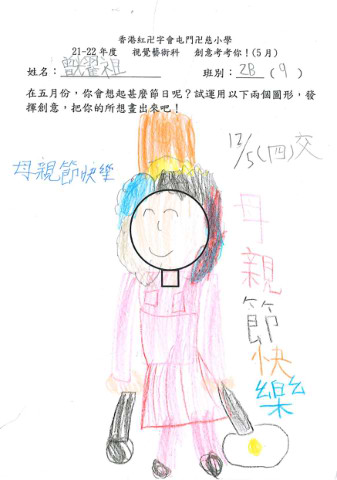 香港紅卍字會屯門卍慈小學
21-22 年度 視覺藝術科 創意考考你！(5 月)
姓名： 祖 班別： 2B ( 9 )
在五月份，你會想起甚麼節日呢？試運用以下兩個圖形，發
揮創意，把你的所想畫出來吧！
12/5(四)交
母親節快樂
母親節快樂